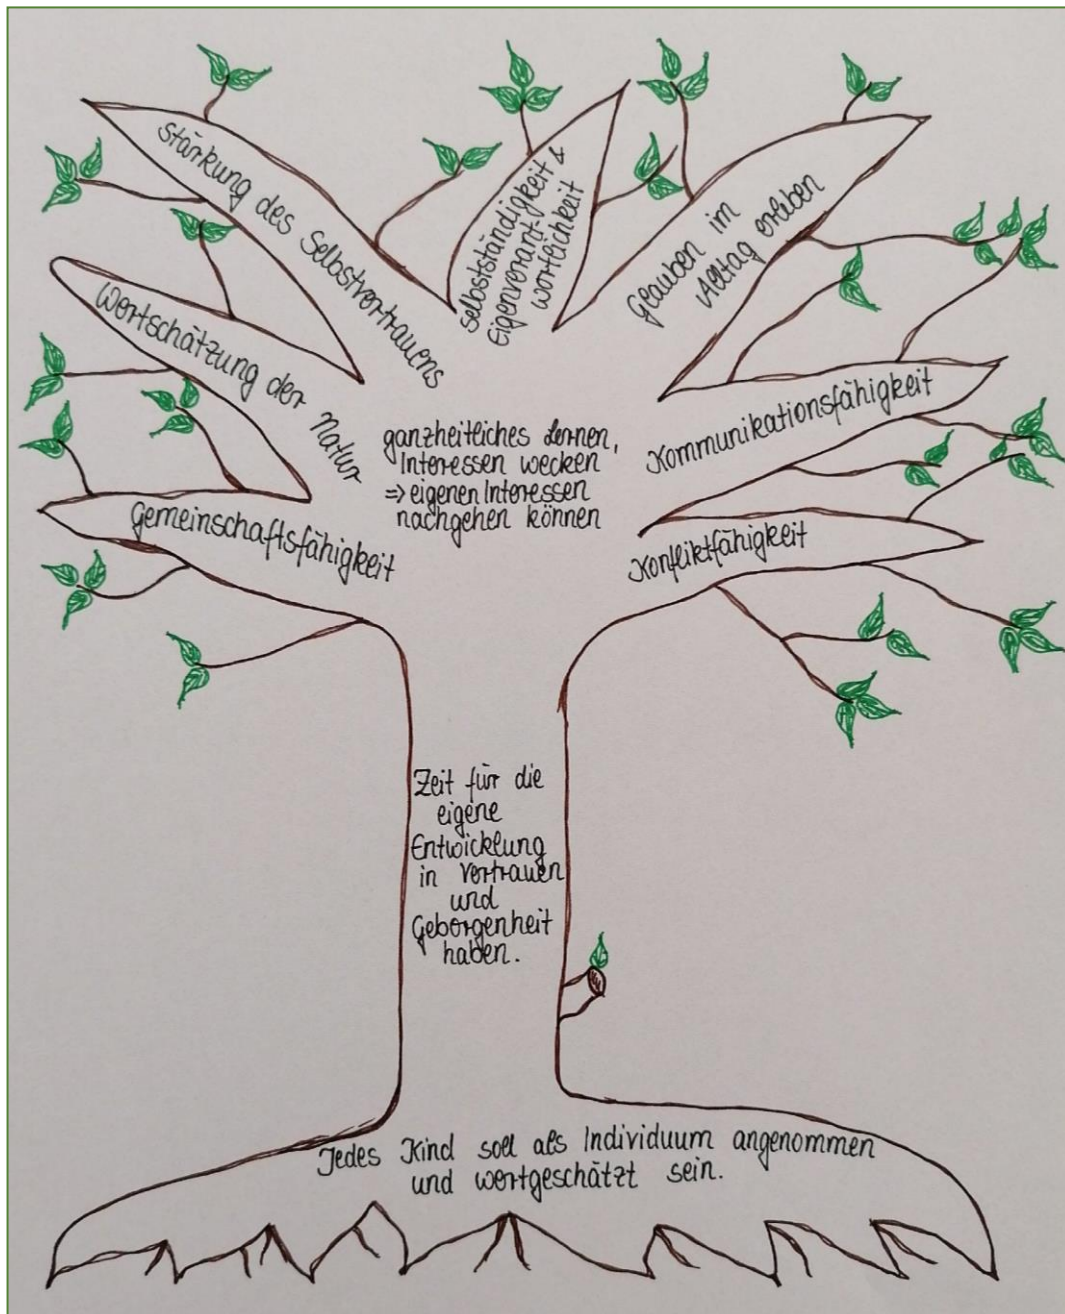 Stärkung des Selbstvertrauens
Selbstständigkeit &
Eigenverant-
wortlichkeit
Glauben im
Alltag erleben
Wertschätzung der Natur
Kommunikationsfähigkeit
ganzheitliches Lernen,
Interessen wecken
=> eigenen Interessen
nachgehen können
Gemeinschaftsfähigkeit
Konfliktfähigkeit
Zeit für die
eigene
Entwicklung
in Vertrauen
und
Geborgenheit
haben.
Jedes Kind soll als Individuum angenommen
und wertgeschätzt sein.